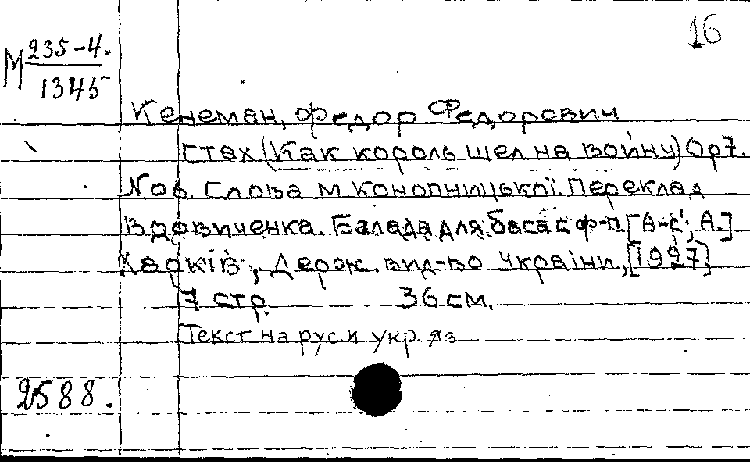 16
М 235-4.
1345
Кенеман, Федор Федорович
Стах (Как король шел на войну) Op 7.
No 6. Слова М Конопницької. Переклад
Вдовиченка. Балада для баса с ф-п. [А-с', А.]
Харків, Держ. вид-во України, [1927]
7 стр. 36 см.
Текст на рус и укр. яз
2588.